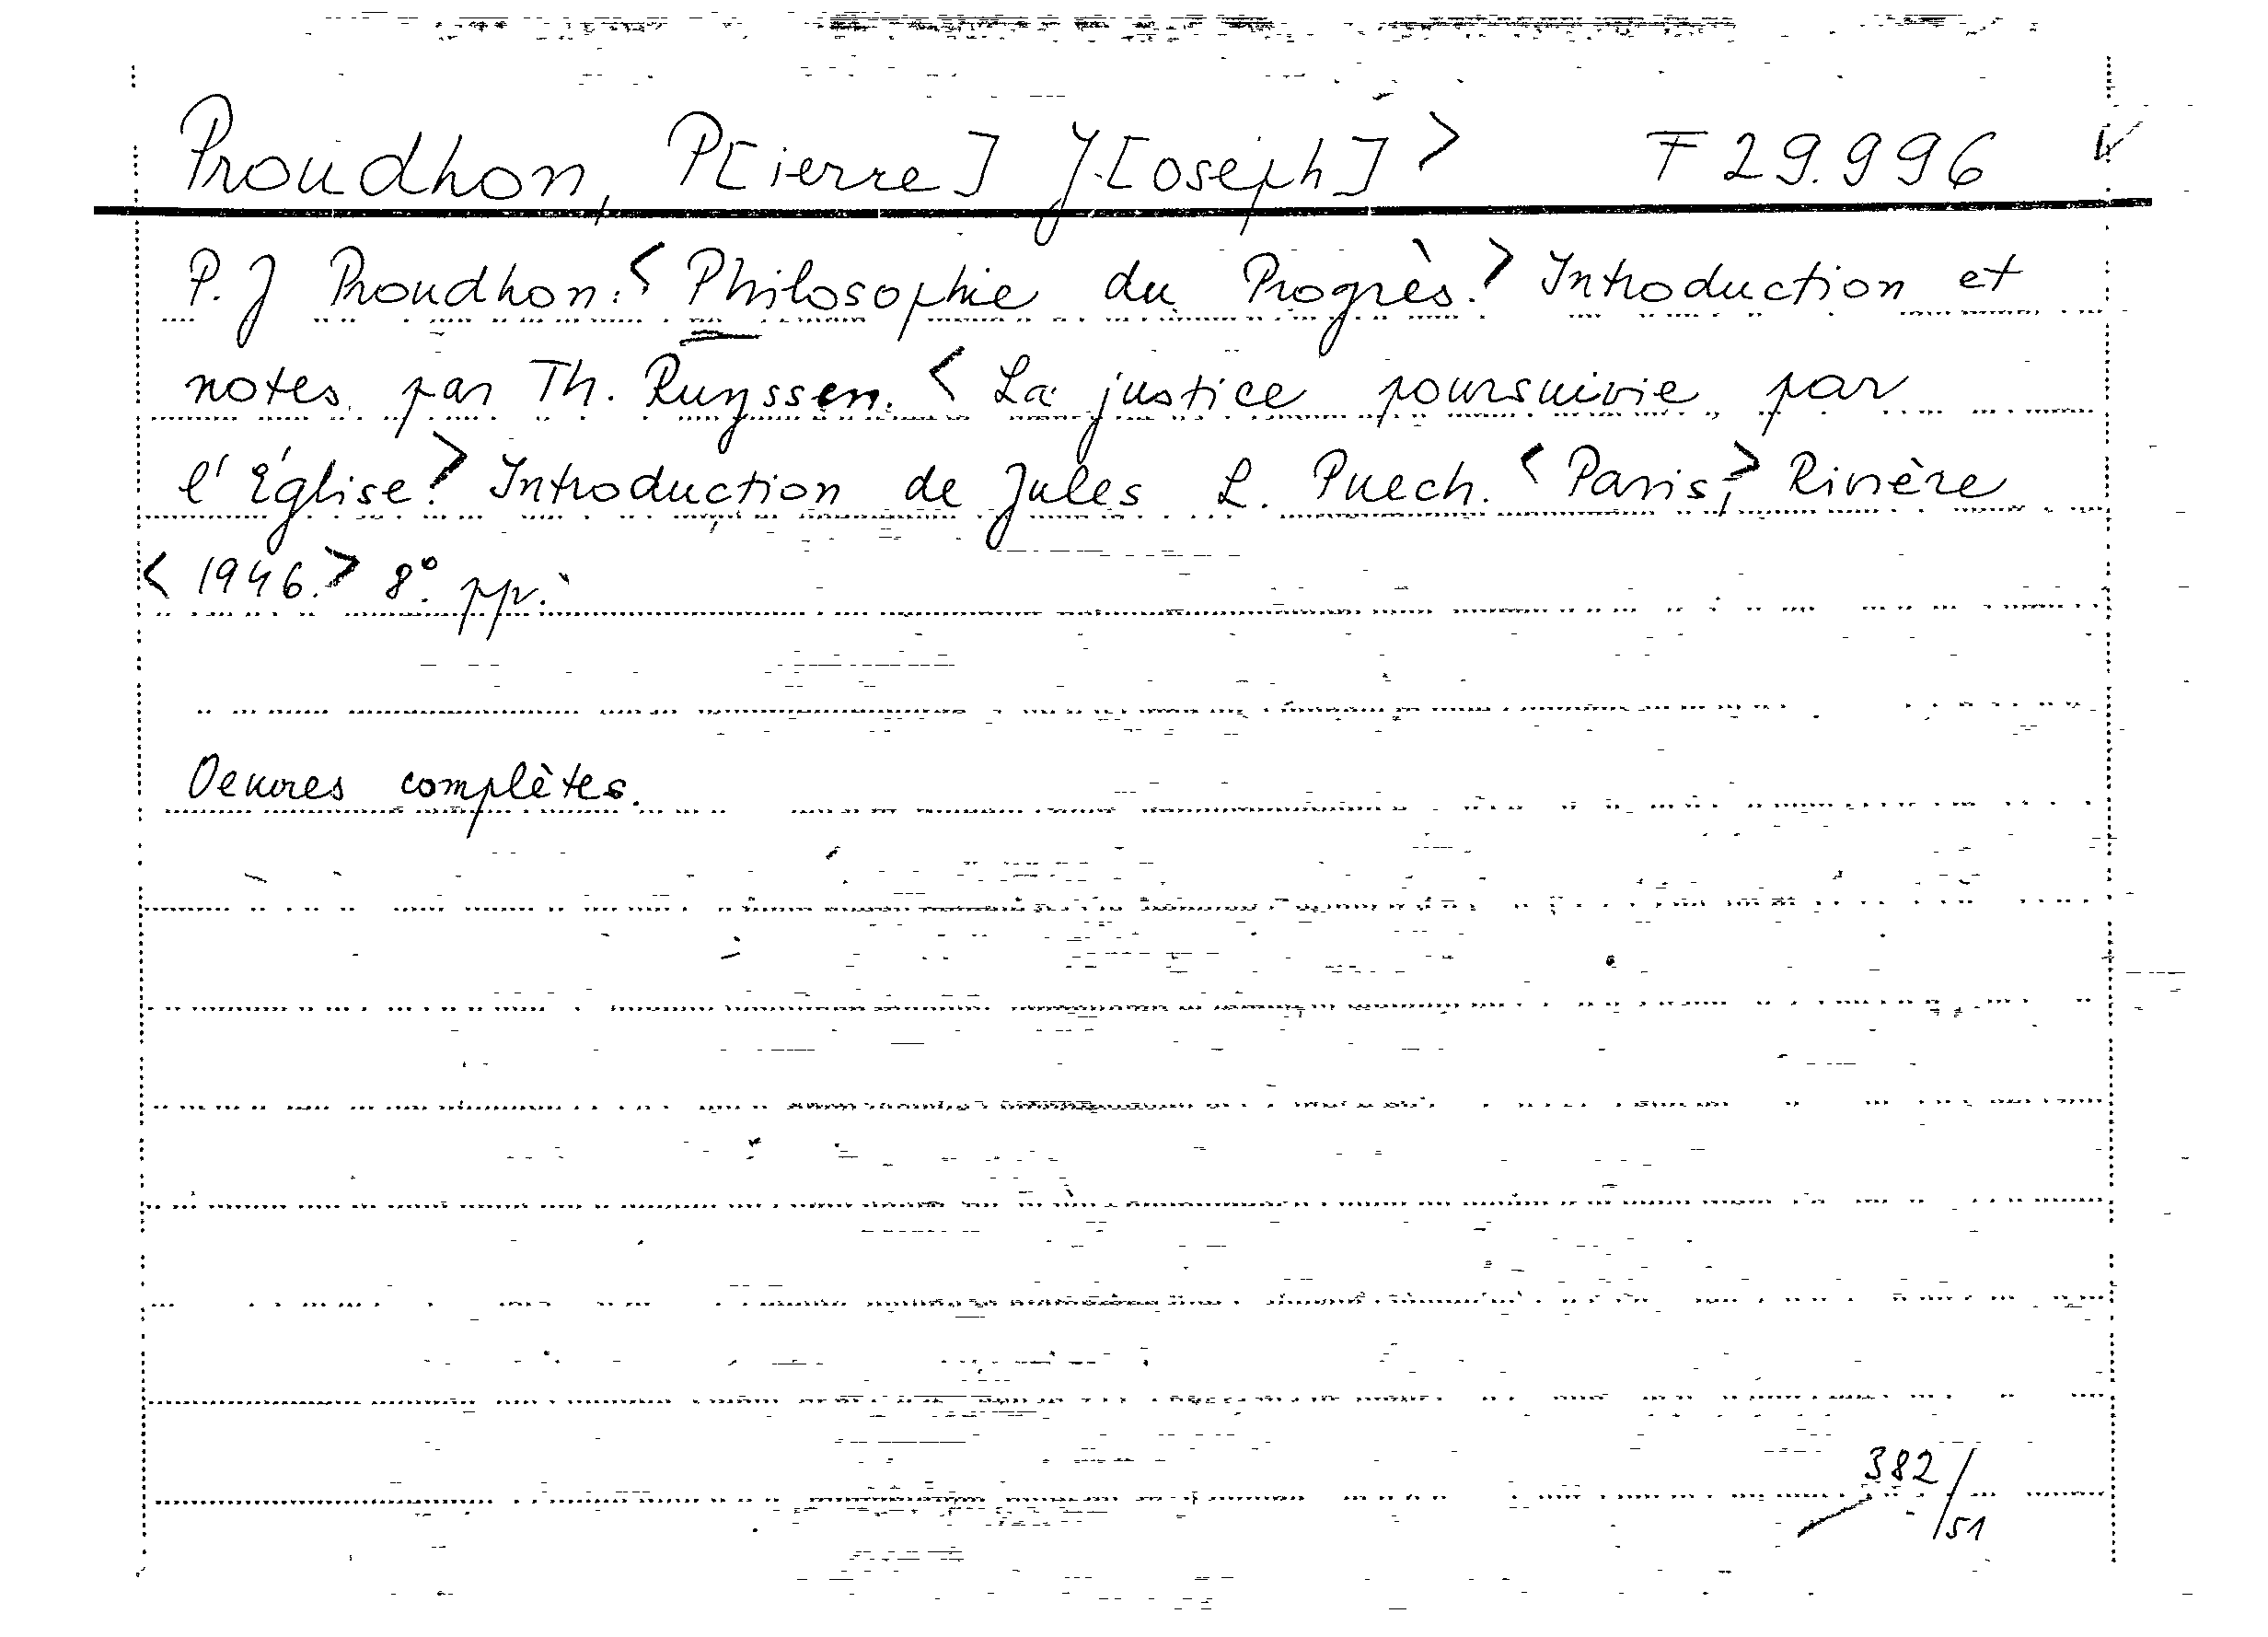 Proudhon, P[ierre] J.[oseph]> F 29.996
P. J Proudhon: <Philosophie du Progrès.> Introduction et
notes par Th. Ruyssen. <La justice poursuivie par
l'Église.> Introduction de Jules L. Puech. <Paris,> Rivière
<1946.> 8°. pp.
Oeuvres complètes.
382/51